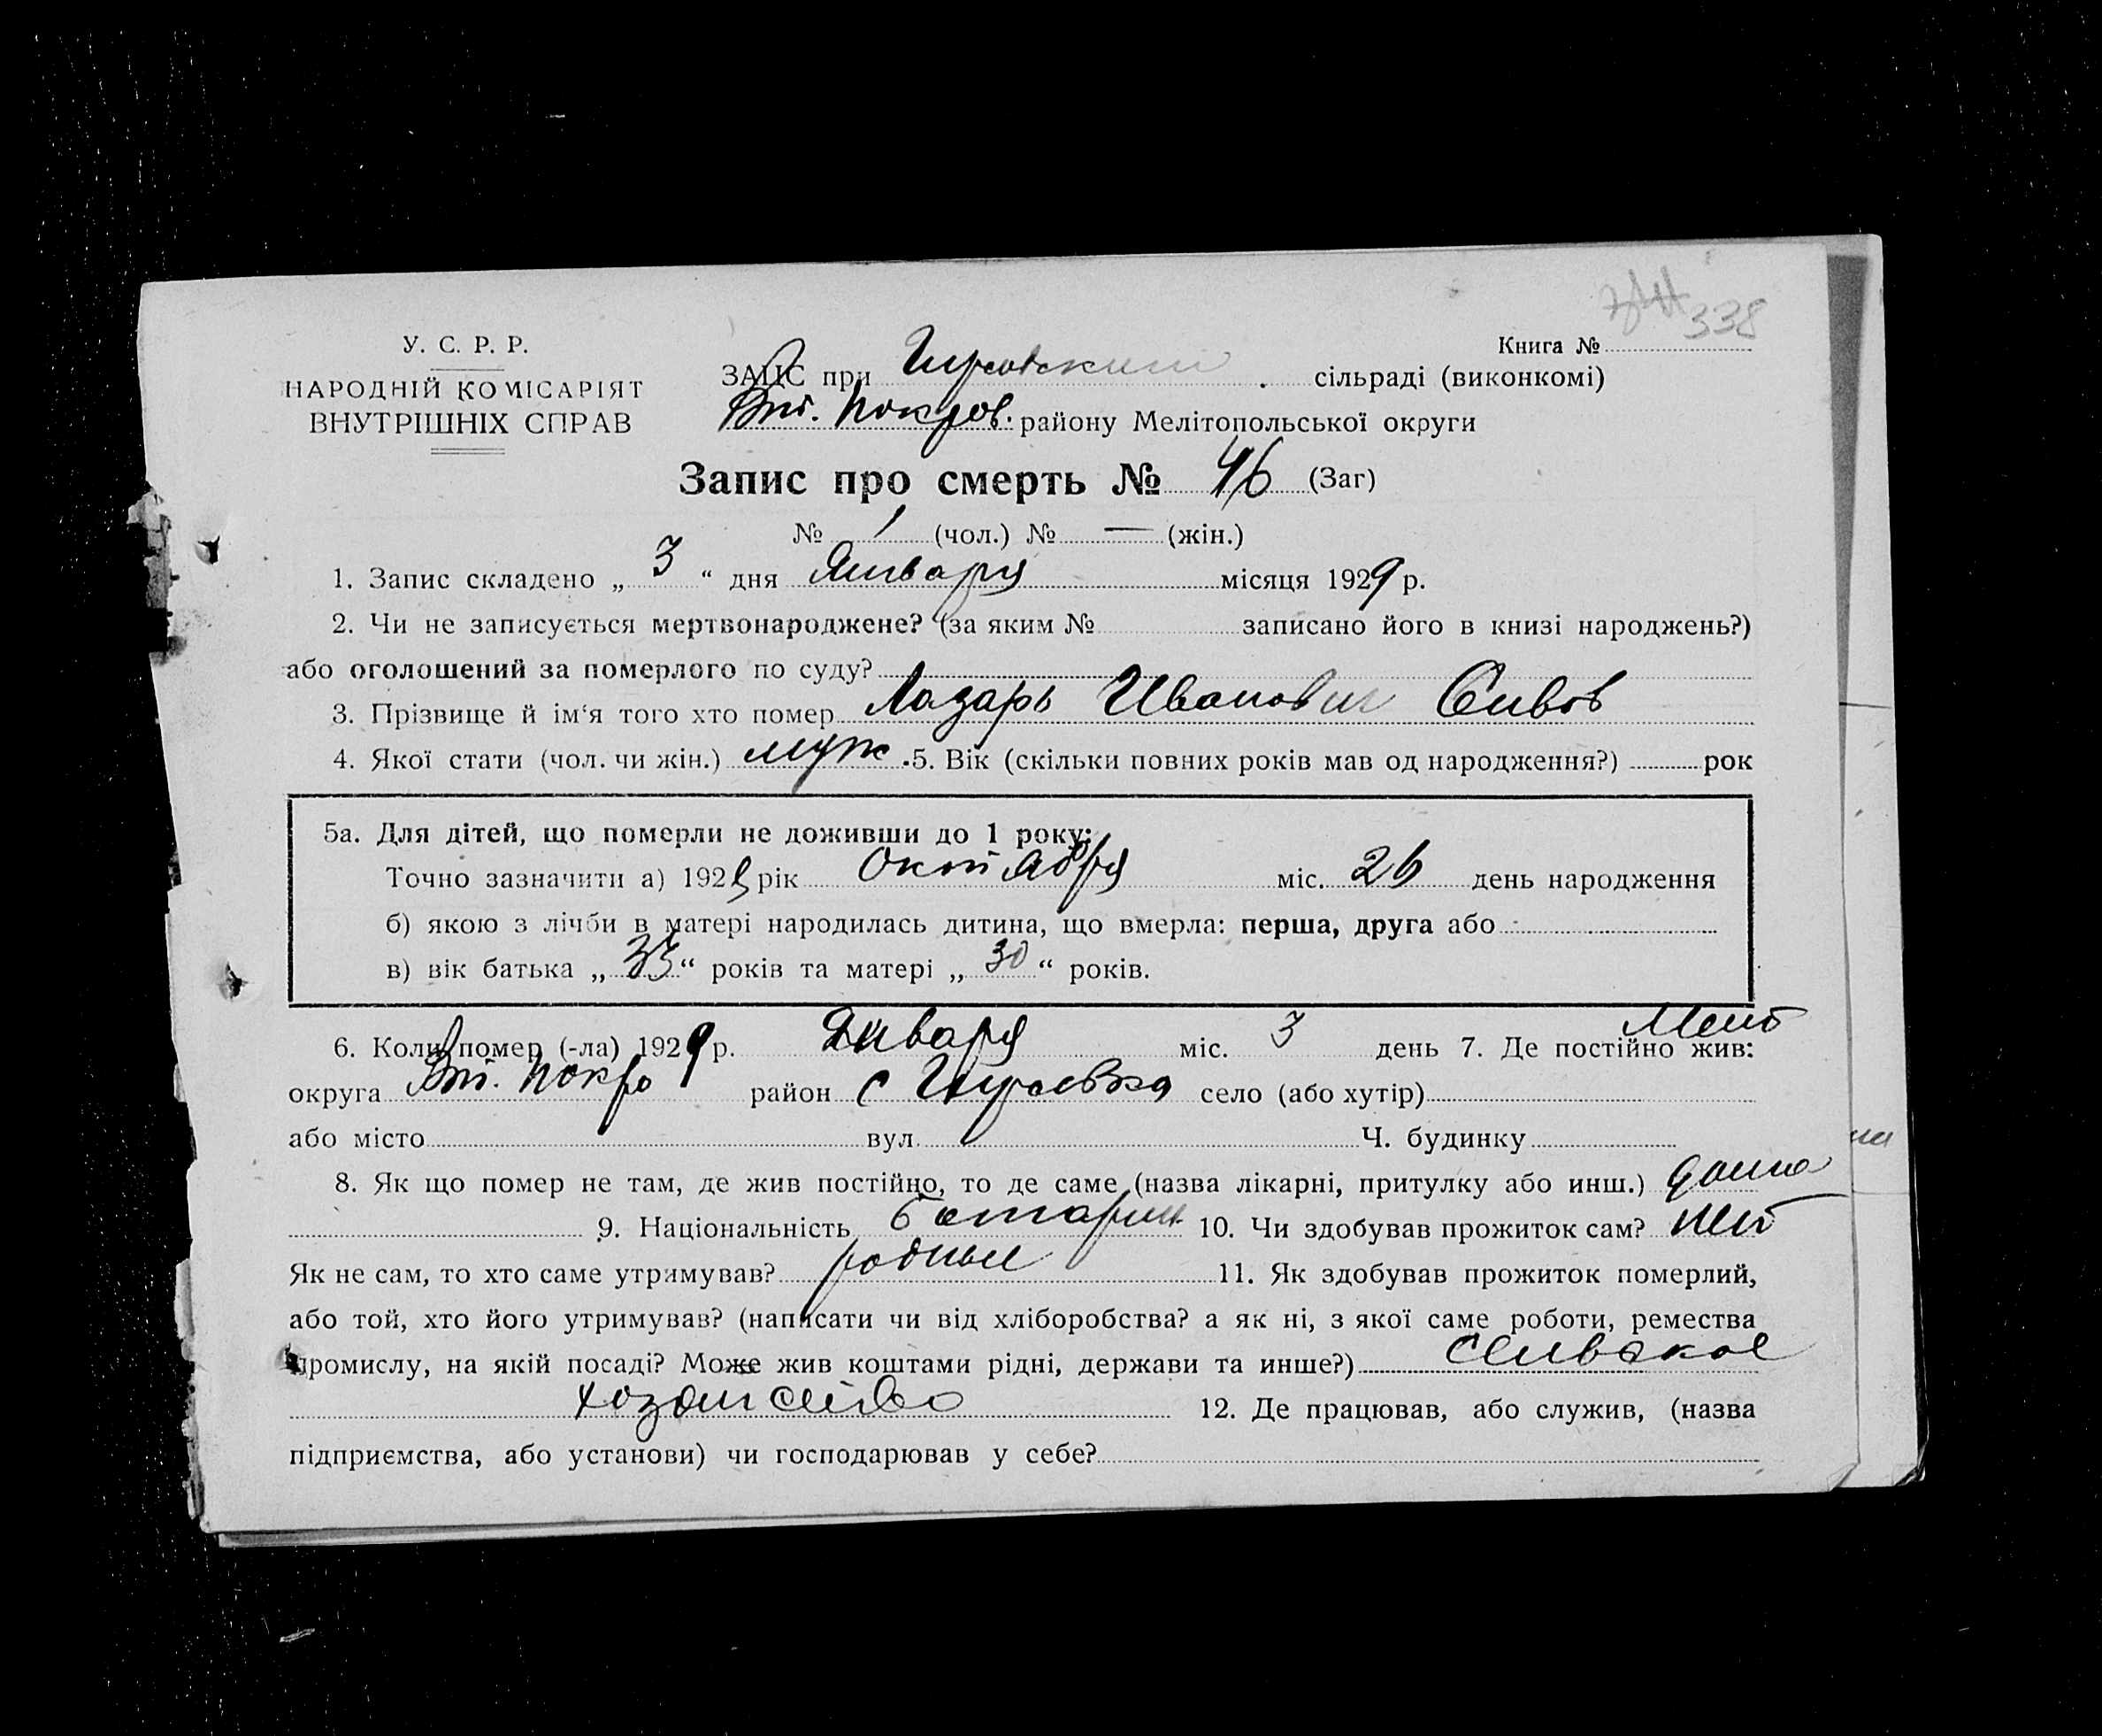 338
У. С. Р. Р.
НАРОДНІЙ КОМІСАРІЯТ
ВНУТРІШНІХ СПРАВ
Книга №
ЗАПС при сільраді (виконкомі)
Вт. Покров. району Мелітопольської округи
Запис про смерть № 46 (Заг)
№ 1 (чол.) № — (жін.)
1. Запис складено „ 3 “ дня Января місяця 1929 р.
2. Чи не записується мертвонароджене? (за яким № записано його в книзі народжень?)
або оголошений за померлого по суду?
3. Прізвище й ім‘я того хто помер Лазарь Иванович Сивов
4. Якої стати (чол. чи жін.) муж. 5. Вік (скільки повних років мав од народження?) рок
5а. Для дітей, що померли не доживши до 1 року:
Точно зазначити а) 1928 рік Октября міс. 26 день народження
б) якою з лічби в матері народилась дитина, що вмерла: перша, друга або
в) вік батька „ 33 “ років та матері „ 30 “ років.
6. Коли помер (-ла) 1929 р. Января міс. 3 день 7. Де постійно жив: Мелит
округа Вт. Покро район с Гирсовка село (або хутір)
або місто вул. Ч. будинку
8. Як що помер не там, де жив постійно, то де саме (назва лікарні, притулку або инш.) дома
9. Національність болгарин 10. Чи здобував прожиток сам? нет
Як не сам, то хто саме утримував? родные 11. Як здобував прожиток померлий,
або той, хто його утримував? (написати чи від хліборобства? а як ні, з якої саме роботи, ремества
промислу, на якій посаді? Може жив коштами рідні, держави та инше?) сельское
хозяйство 12. Де працював, або служив, (назва
підприємства, або установи) чи господарював у себе?